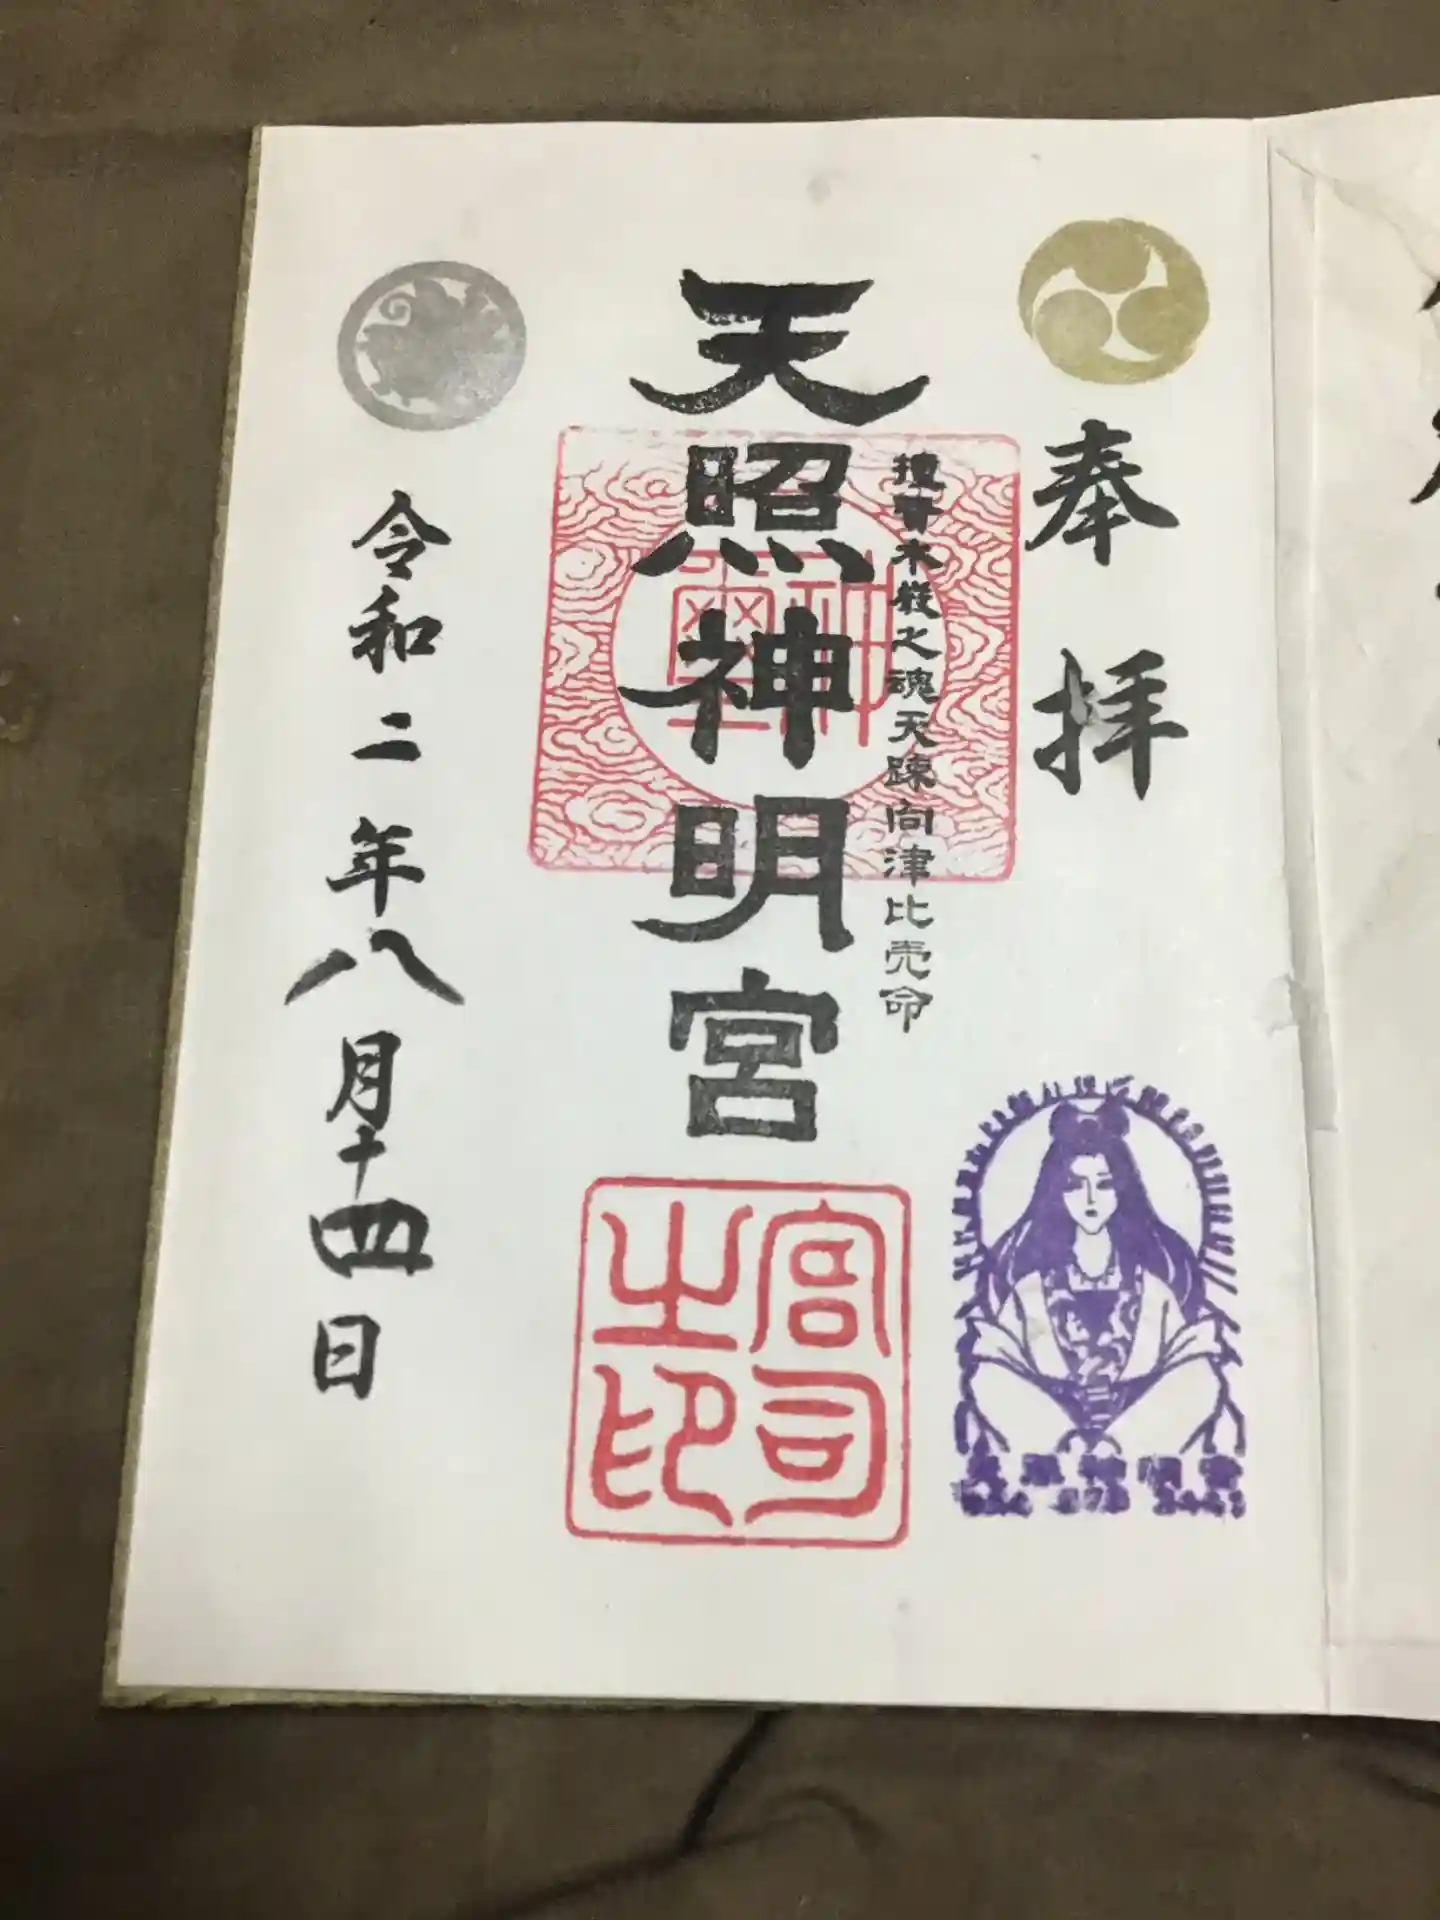 奉拝
撞賢木厳之魂天疎向津比売命
天照神明宮
神璽
宮司之印
令和二年八月十四日